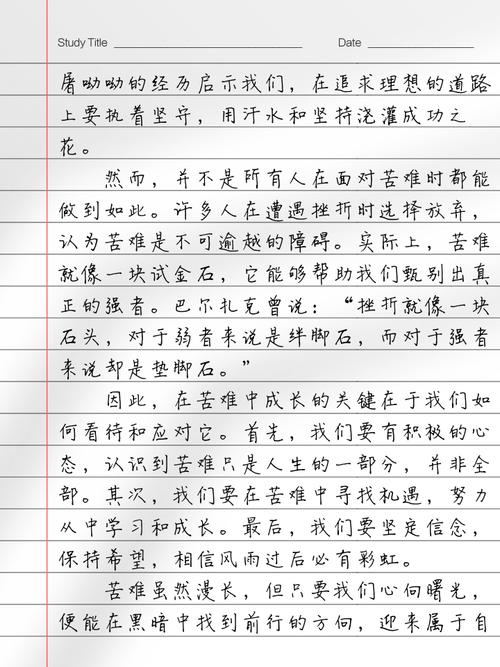 Study Title Date
屠呦呦的经历启示我们，在追求理想的道路
上要执着坚守，用汗水和坚持浇灌成功之
花。
然而，并不是所有人在面对苦难时都能
做到如此。许多人在遭遇挫折时选择放弃，
认为苦难是不可逾越的障碍。实际上，苦难
就像一块试金石，它能够帮助我们甄别出真
正的强者。巴尔扎克曾说：“挫折就像一块
石头，对于弱者来说是绊脚石，而对于强者
来说却是垫脚石。”
因此，在苦难中成长的关键在于我们如
何看待和应对它。首先，我们要有积极的心
态，认识到苦难只是人生的一部分，并非全
部。其次，我们要在苦难中寻找机遇，努力
从中学习和成长。最后，我们要坚定信念，
保持希望，相信风雨过后必有彩虹。
苦难虽然漫长，但只要我们心向曙光，
便能在黑暗中找到前行的方向，迎来属于自